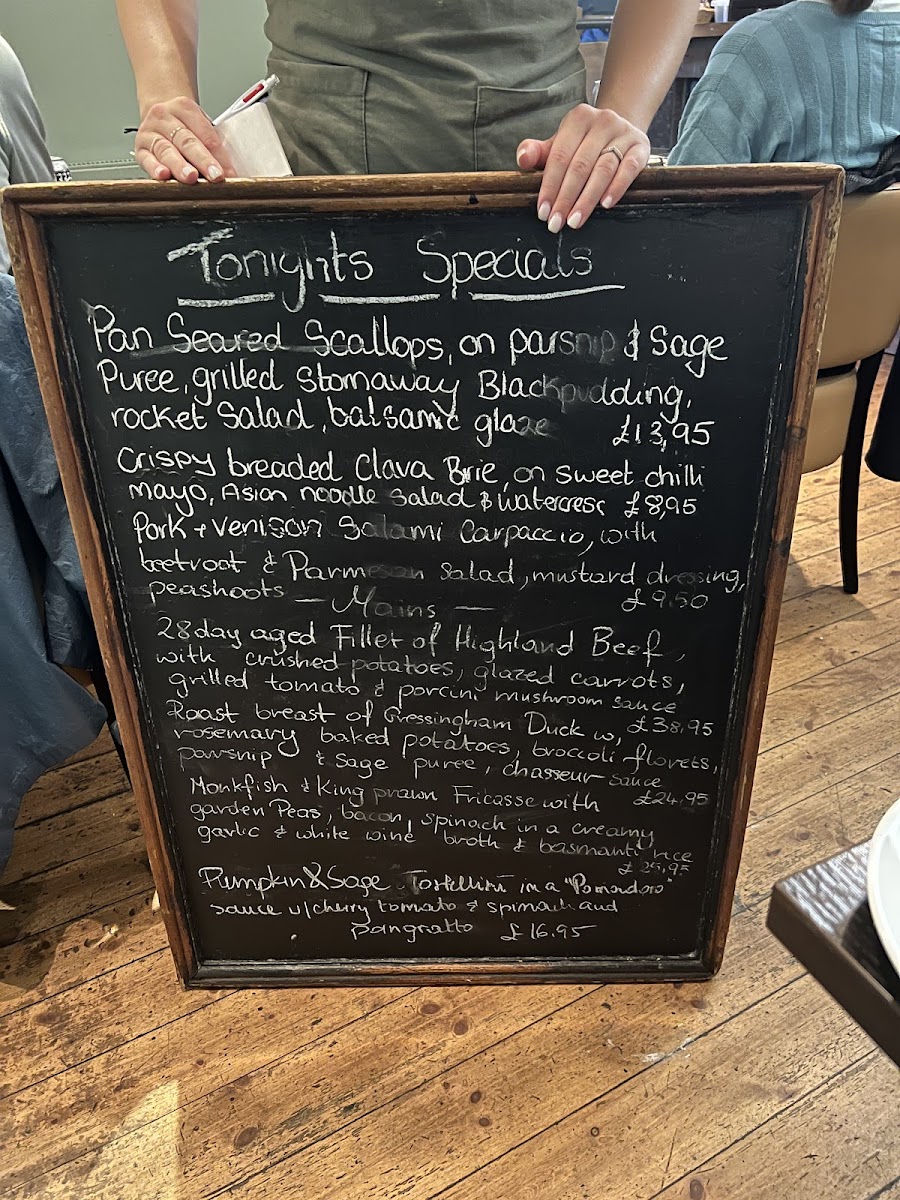 Tonights Specials
Pan Seared Scallops, on parsnip & Sage
Puree, grilled Stornaway Blackpudding,
rocket Salad, balsamic glaze £13,95
Crispy breaded Clava Brie, on sweet chilli
mayo, Asian noodle Salad & watercress £8,95
Pork + venison Salami Carpaccio, with
beetroot & Parmesan Salad, mustard dressing,
peashoots £9.50
— Mains —
28day aged Fillet of Highland Beef,
with crushed potatoes, glazed carrots,
grilled tomato & porcini mushroom sauce
£38,95
Roast breast of Gressingham Duck w,
rosemary baked potatoes, broccoli florets,
parsnip & sage puree, chasseur sauce
£24,95
Monkfish & King prawn Fricasse with
garden Peas, bacon, spinach in a creamy
garlic & white wine broth & basmanti rice
£25,95
Pumpkin & Sage Tortellini in a "Pomodoro"
sauce w/cherry tomato & spinach and
pangratto £16.95